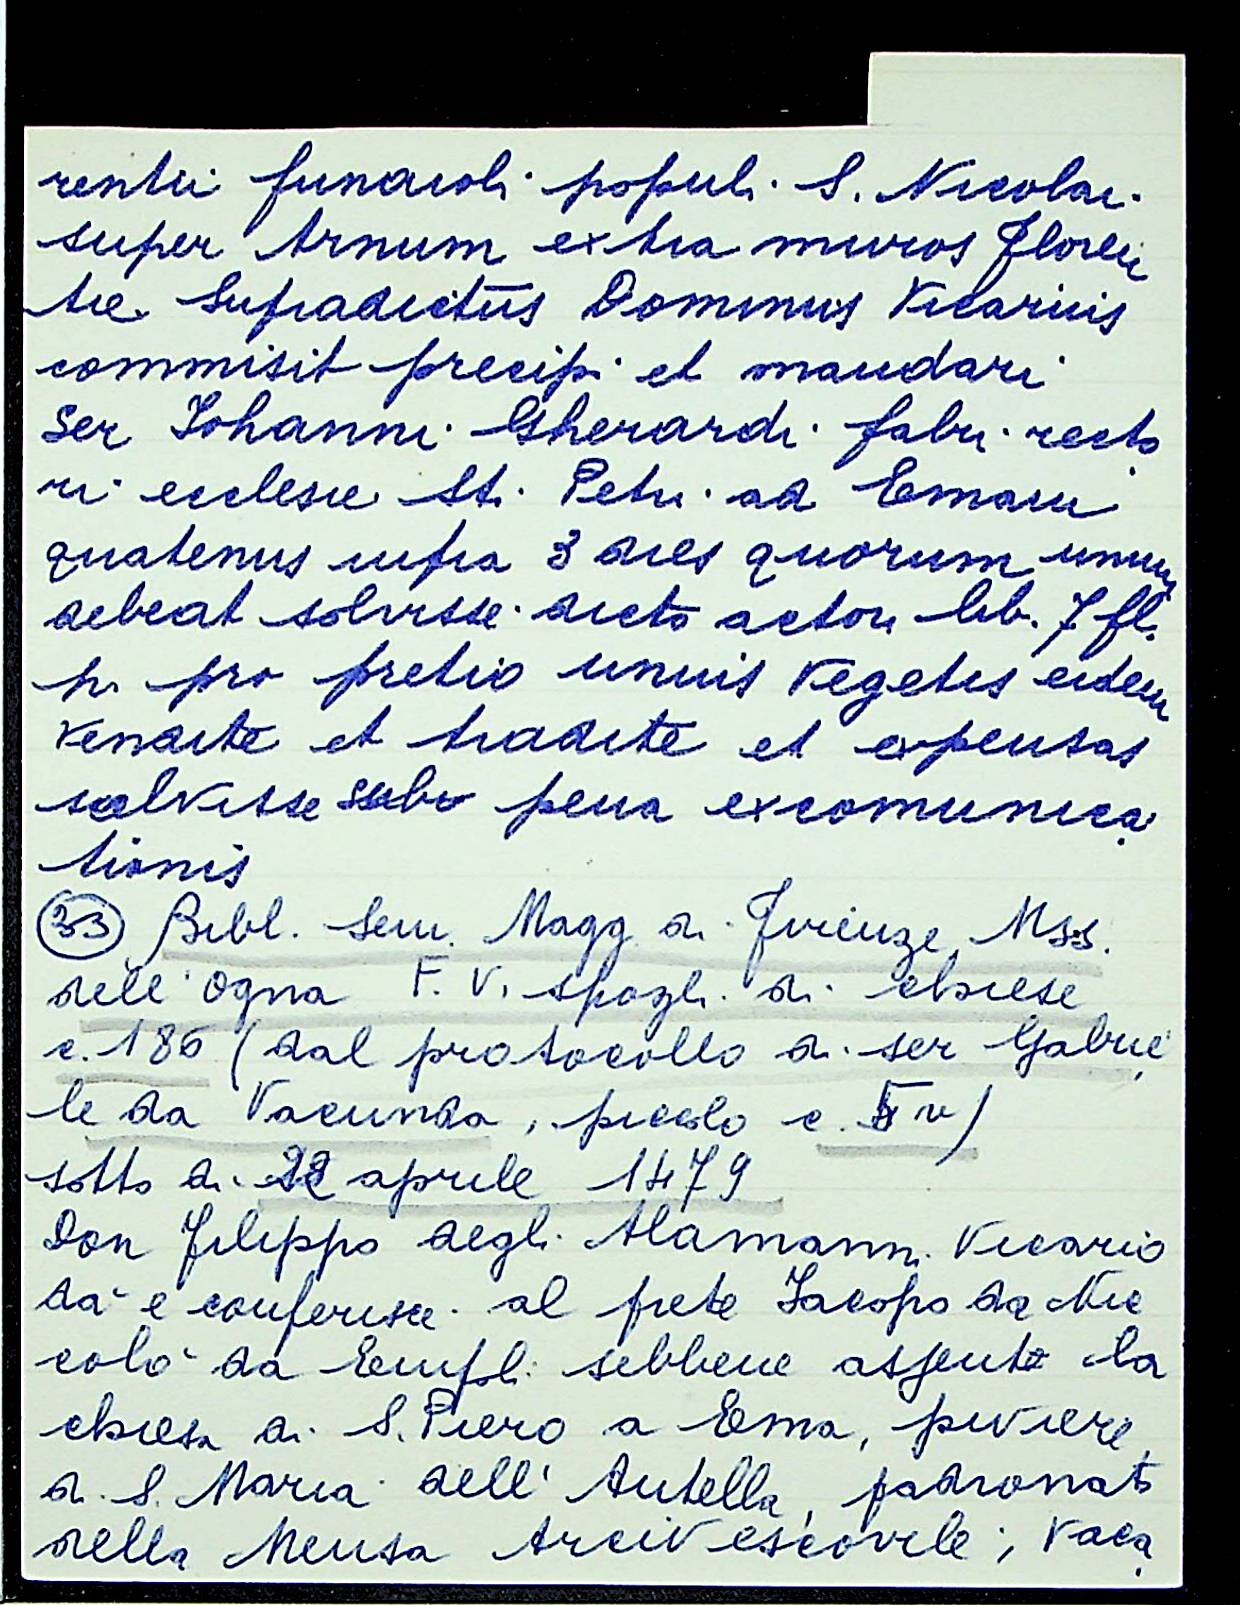 rentii funaioli populi S. Nicolai
super Arnum extra muros Floren
tie. Supradictus Dominus Vicarius
commisit precipi et mandari
Ser Iohanni Gherardi fabri recto
ri ecclesie St. Petri ad Emam
quatenus infra 3 dies quorum unum
debeat solvisse dicto actori lib. 7 fl.
p. pro pretio unius vegetis eidem
vendite et tradite et expensas
salvisse sub pena excomunica
tionis
(33) Bibl. Sem. Magg di Firenze Mss.
dell'Ogna F. V. spogli di chiese
c. 186 (dal protocollo di ser Gabrie
le da Vacunda, piccolo c. v)
sotto di 22 aprile 1479
Don Filippo degli Alamanni Vicario
dà e conferisce al prete Iacopo da Nic
colò da Empoli sebbene assente la
chiesa di S. Piero a Ema, piviere
di S. Maria dell'Antella, padronato
della Mensa Arcivescovile; vaca